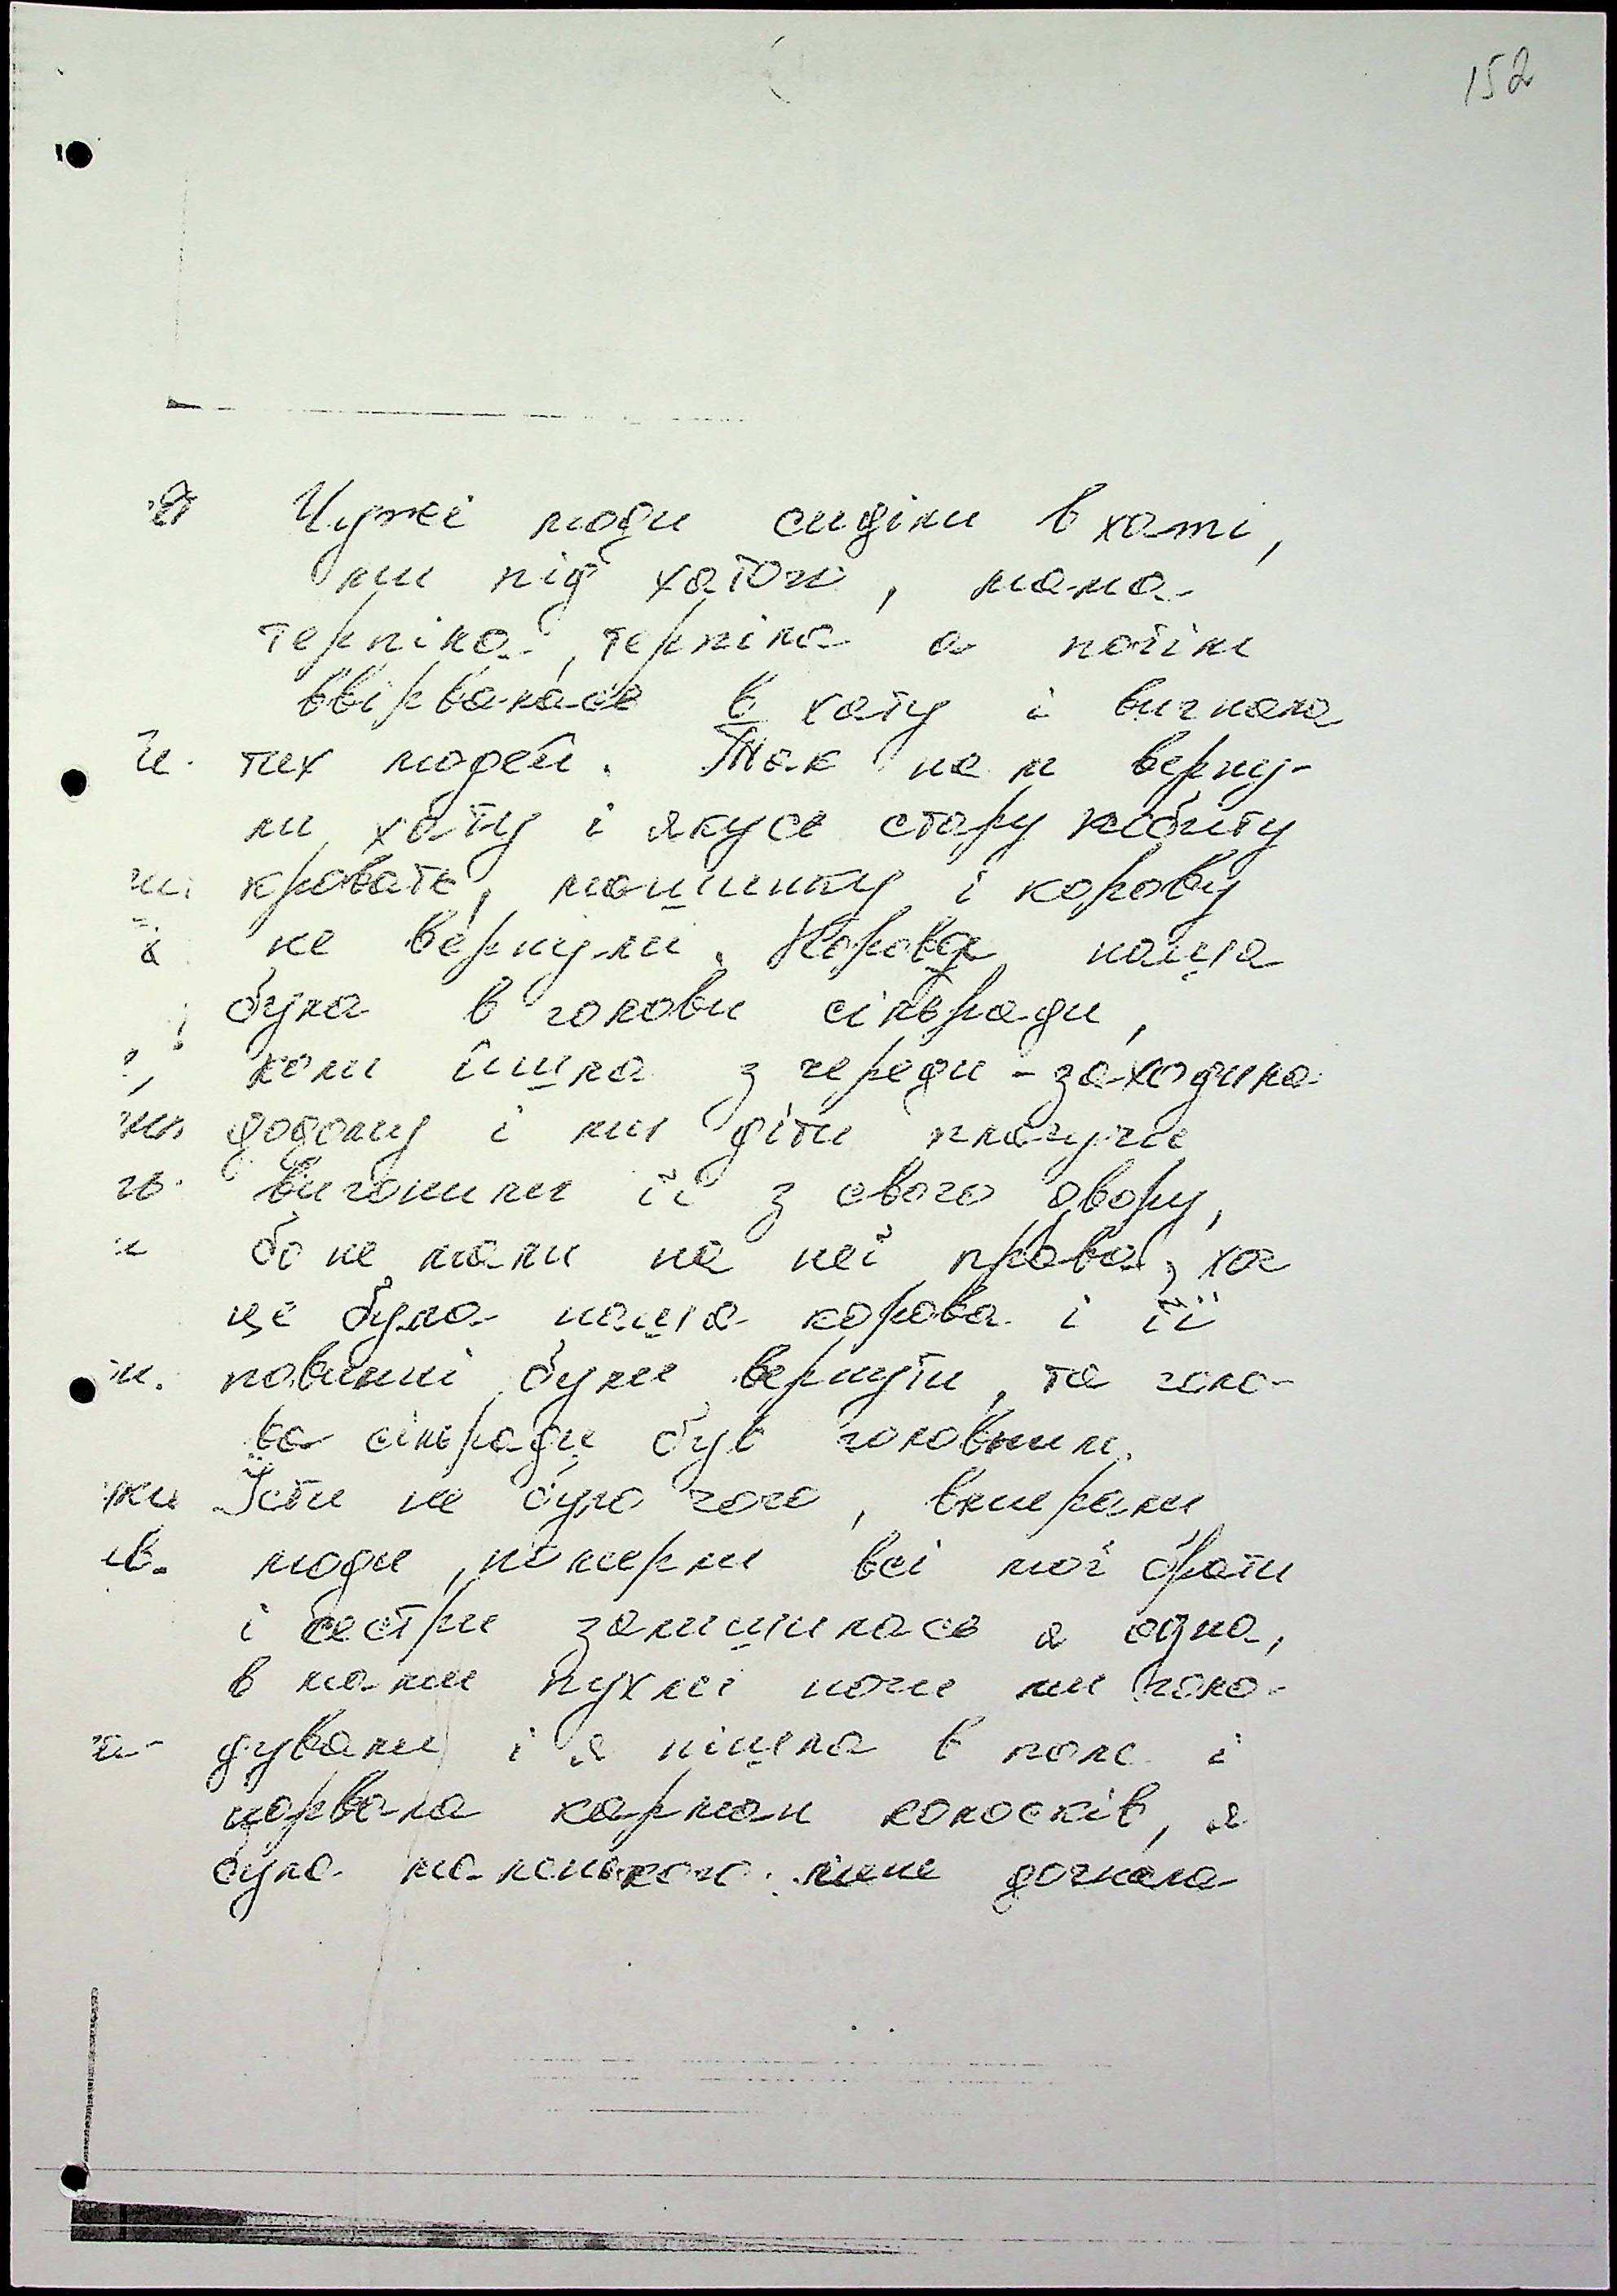 152
Чужі люди сиділи в хаті,
ми під хатою, мама
терпіла, терпіла а потім
ввірвалась в хату і вигнала
тих людей. Так нам верну-
ли хату і якусь стару
кровать, машинку і корову
не вернули. Корова наша
була в голови сільради,
коли йшла з череди - заходила
додому і ми діти плачучи
вигонили її з свого двору,
бо не мали на неї права, хоч
це була наша корова і її
повинні були вернути, та голо-
ва сільради був головним.
Їсти не було чого, вмирали
люди, померли всі мої брати
і сестри залишилась я одна,
в мами пухлі ноги ми голо-
дували і я пішла в поле і
нарвала карман колосків, я
була маленькою мене догнала